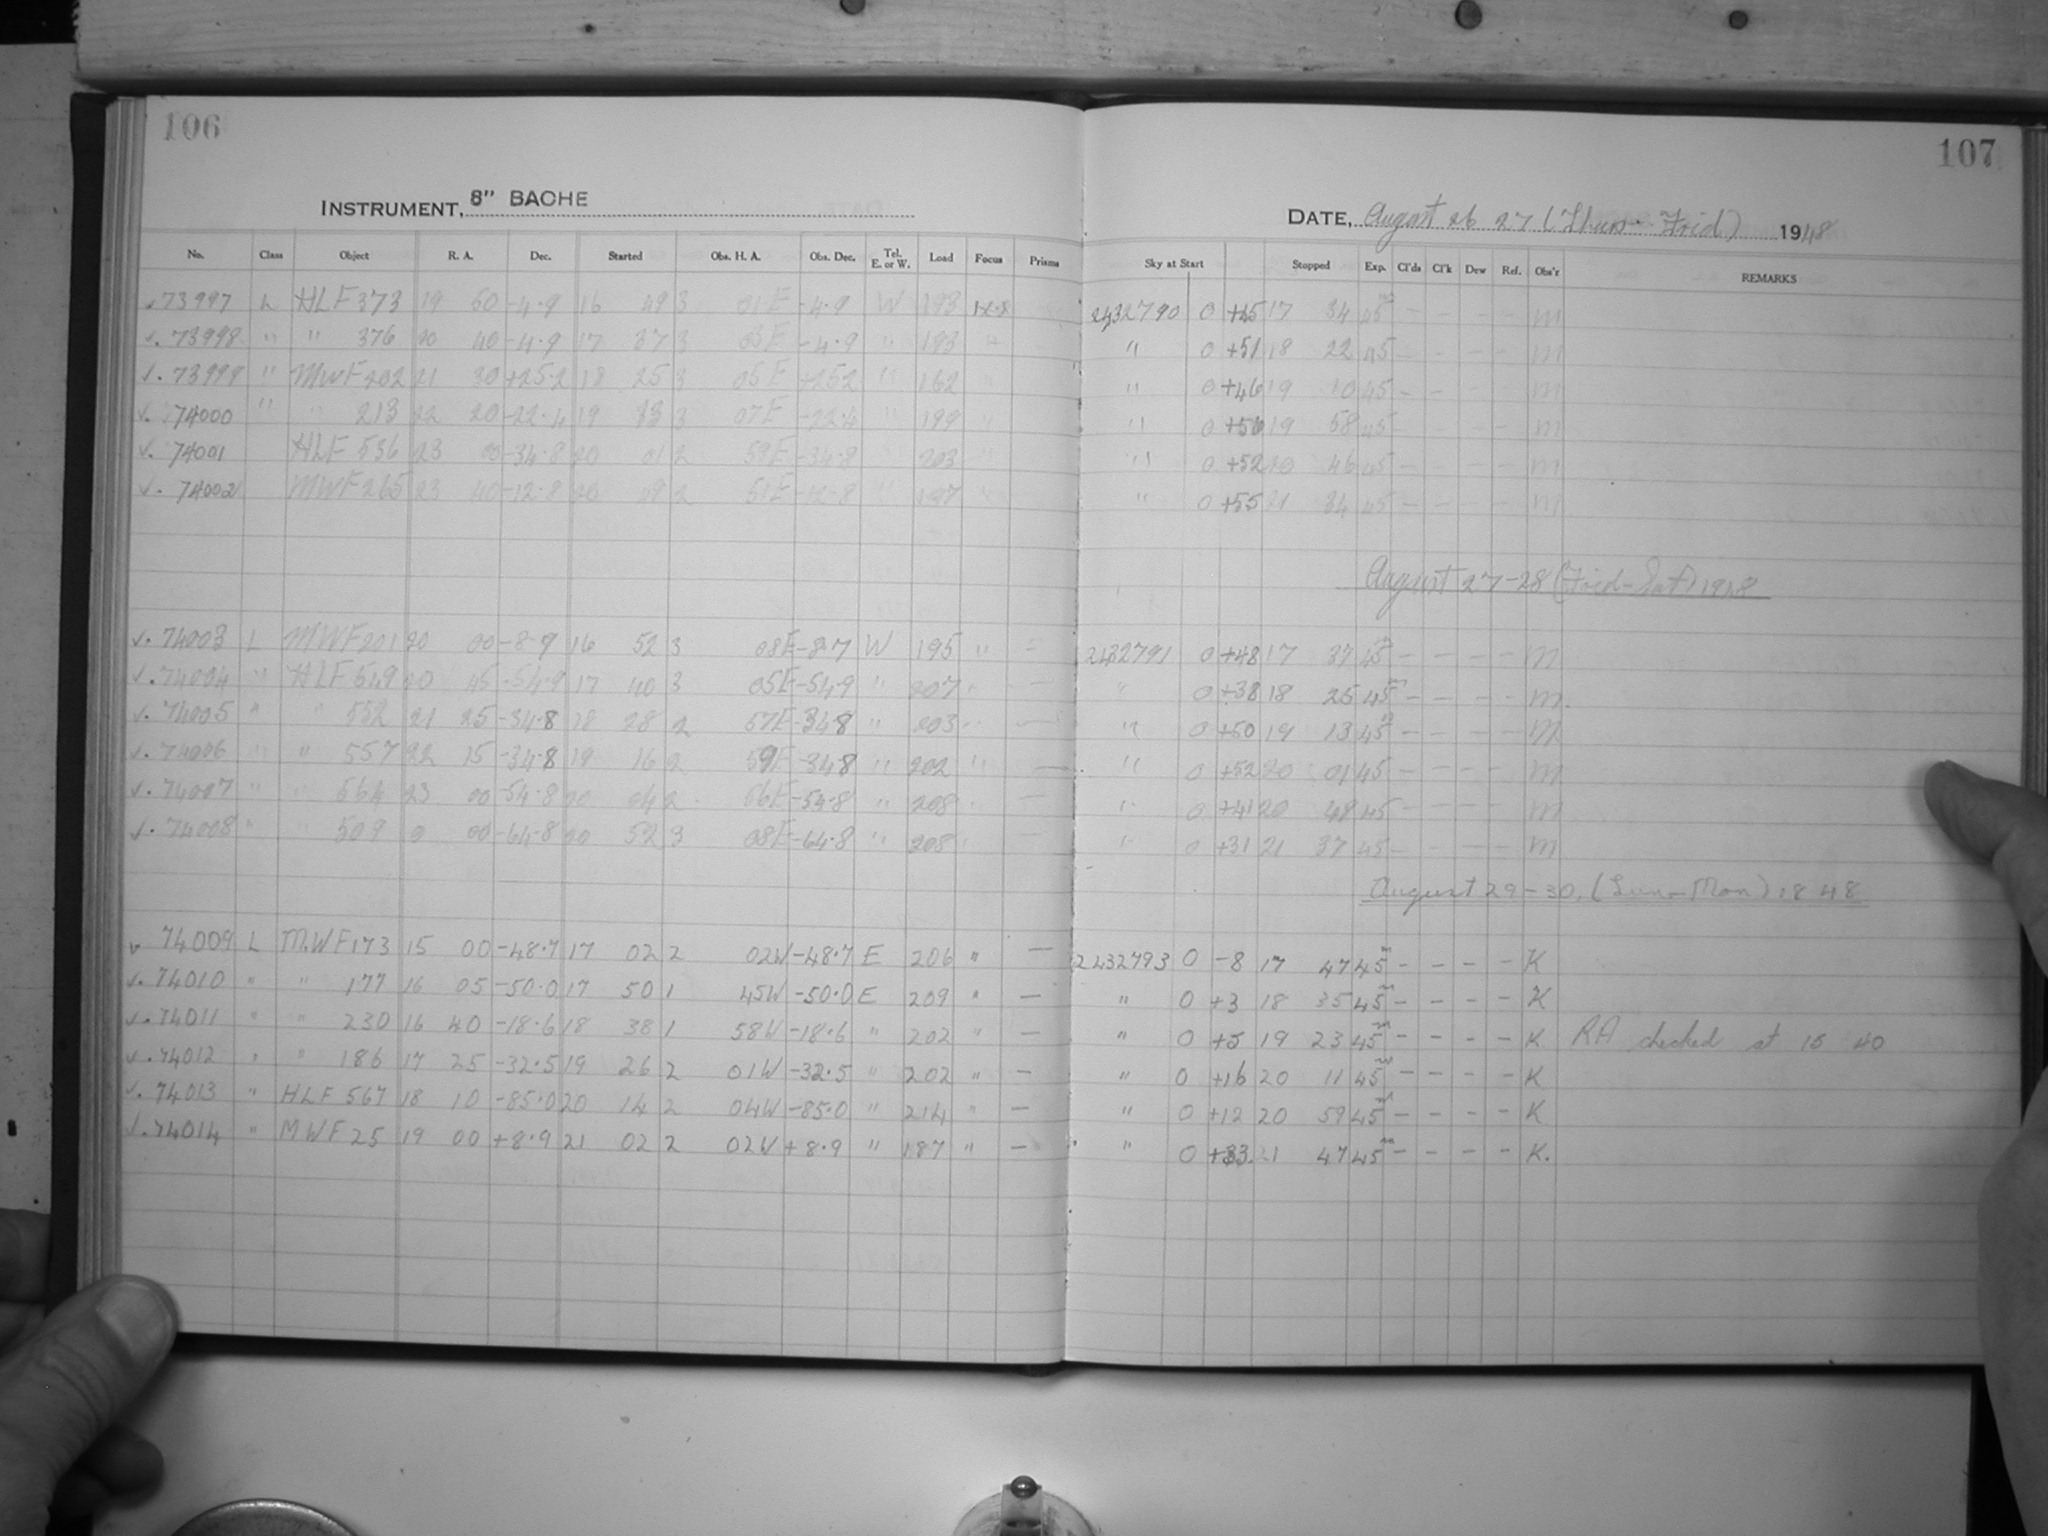 106
107
INSTRUMENT, 8" BACHE
DATE, August 26 27 (Thurs - Frid) 1948
No. Class Object R. A. Dec. Started Obs. H. A. Obs. Dec. Tel. E. or W. Load Focus Prisms Sky at Start Stopped Exp. Cl'ds Cl'k Dew Ref. Obs'r REMARKS
√73997 L HLF 373 19 50 -4.9 16 49 3 01E -4.9 W 193 2432790 0 +45 17 34 45m - - - - M
√. 73998 " " 376 20 40 -4.9 17 37 3 03E -4.9 " 193 " " 0 +51 18 22 45 - - - - M
√. 73999 " MWF 202 21 30 +25.2 18 25 3 05E +25.2 " 162 " " 0 +46 19 10 45 - - - - M
√. 74000 " " 213 22 20 -22.4 19 13 3 07E -22.4 " 199 " " 0 +56 19 58 45 - - - - M
√. 74001 HLF 536 23 00 -34.8 20 01 2 59E -34.8 203 " " 0 +52 20 46 45 - - - - M
√. 74002 MWF 265 23 40 -12.8 20 49 2 51E -12.8 " 197 " " 0 +55 21 34 45 - - - - M
August 27-28 (Frid-Sat) 1948
√. 74003 L MWF 201 20 00 -8.9 16 52 3 08E -8.7 W 195 " - 2432791 0 +48 17 37 45m - - - - M
√. 74004 " HLF 549 20 45 -54.9 17 40 3 05E -54.9 " 207 " - " 0 +38 18 25 45m - - - - M
√. 74005 " " 552 21 25 -34.8 18 28 2 57E -34.8 " 203 " - " 0 +50 19 13 45m - - - - M
√. 74006 " " 557 22 15 -34.8 19 16 2 59E -34.8 " 202 " - " 0 +52 20 01 45 - - - - M
√. 74007 " " 564 23 00 -54.8 20 04 2 56E -54.8 " 208 " - " 0 +41 20 48 45 - - - - M
√. 74008 " " 509 0 00 -64.8 20 52 3 08E -64.8 " 208 " - " 0 +31 21 37 45 - - - - M
August 29-30, (Sun-Mon) 1848
√ 74009 L MWF 173 15 00 -48.7 17 02 2 02W -48.7 E 206 " - 2432793 0 -8 17 47 45m - - - - K
√. 74010 " " 177 16 05 -50.0 17 50 1 45W -50.0 E 209 " - " 0 +3 18 35 45m - - - - K
√. 74011 " " 230 16 40 -18.6 18 38 1 58W -18.6 " 202 " - " 0 +5 19 23 45m - - - - K RA checked at 15 40
√. 74012 " " 186 17 25 -32.5 19 26 2 01W -32.5 " 202 " - " 0 +16 20 11 45m - - - - K
√. 74013 " HLF 567 18 10 -85.0 20 14 2 04W -85.0 " 214 " - " 0 +12 20 59 45m - - - - K
√. 74014 " MWF 25 19 00 +8.9 21 02 2 02W +8.9 " 187 " - " 0 +33. 21 47 45m - - - - K.